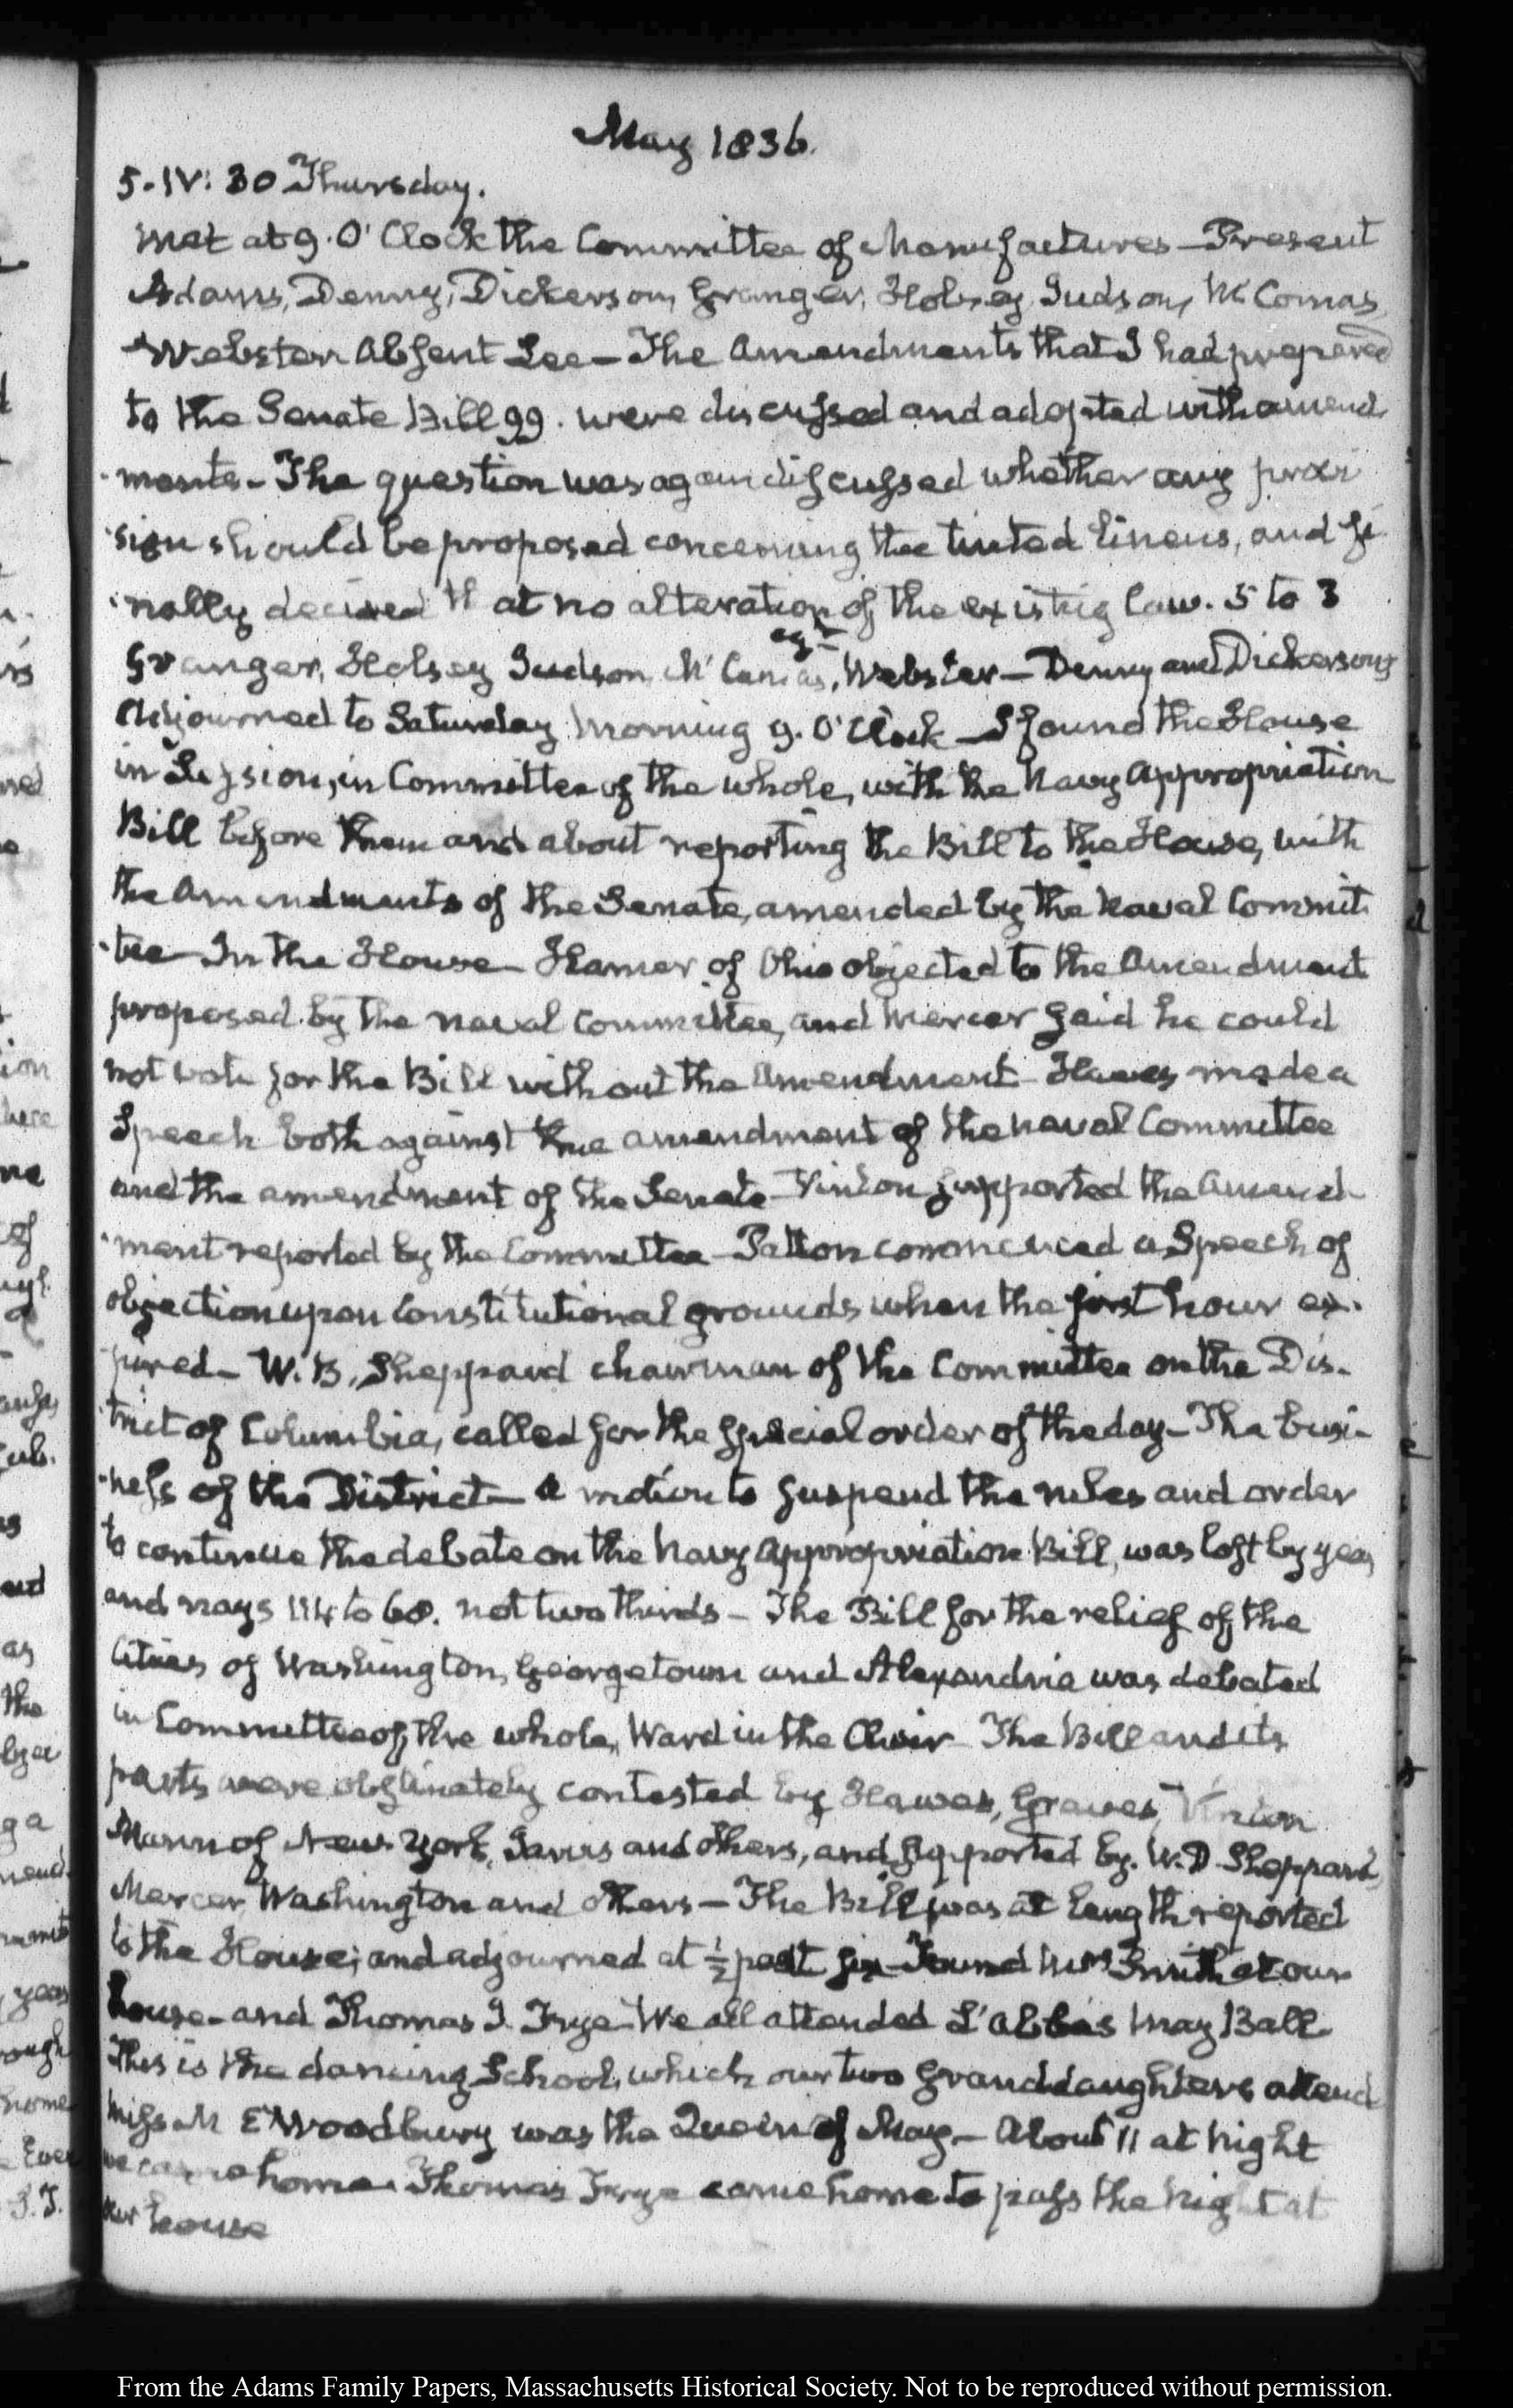 May 1836.
5. IV: 30 Thursday.
Met at 9. O'Clock the Committee of Manufactures — Present
Adams, Denny, Dickerson, Granger, Holsey, Judson, McComas,
Webster Absent Lee — The Amendments that I had prepared
to the Senate Bill 99. were discussed and adopted with amend
ments — The question was again discussed whether any provi
sion should be proposed concerning the tinted linens, and fi
nally decided that no alteration of the existing law. 5 to 3
agt
Granger, Holsey Judson McComas, Webster — Denny and Dickerson
Adjourned to Saturday Morning 9. O'Clock — I found the House
in Session, in Committee of the whole, with the Navy Appropriation
Bill before them and about reporting the Bill to the House, with
the Amendments of the Senate, amended by the Naval Commit
tee — In the House — Hamer of Ohio objected to the Amendment
proposed by the naval Committee, and Mercer said he could
not vote for the Bill without the Amendment — Hawes made a
Speech both against the amendment of the naval Committee
and the amendment of the Senate — Vinton supported the Amend
ment reported by the Committee — Patton commenced a Speech of
objection upon Constitutional grounds when the first hour ex
pired — W. B. Sheppard chairman of the Committee on the Dis
trict of Columbia, called for the special order of the day — The busi
ness of the District — A motion to suspend the rules and order
to continue the debate on the Navy Appropriation Bill, was lost by yeas
and nays 114 to 68. not two thirds — The Bill for the relief of the
Cities of Washington, Georgetown and Alexandria was debated
in Committee of the whole, Ward in the Chair — The Bill and its
parts were obstinately contested by Hawes, Graves, Vinton
Mann of New York, Janvis and others, and supported by. W. D. Sheppard,
Mercer, Washington and others — The Bill was at length reported
to the House; and adjourned at ½ past six — Found Mrs Smith at our
house — and Thomas J. Frye — We all attended L'abbe's May Ball
This is the dancing School, which our two granddaughters attend
Miss M E Woodbury was the Queen of May — About 11 at Night
we came home. Thomas Frye came home to pass the Night at
our house
From the Adams Family Papers, Massachusetts Historical Society. Not to be reproduced without permission.